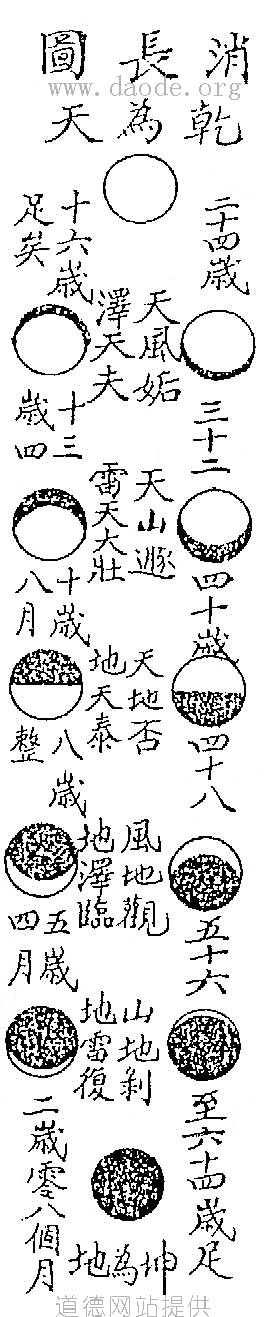 消長圖
www.daode.org
乾為天
二十四歲
三十二
四十歲
四十八
五十六
至六十四歲足
天風姤
澤天夬
天山遯
雷天大壯
天地否
地天泰
風地觀
地澤臨
山地剝
地雷復
坤為地
十六歲足矣
十三歲四
十歲八月
八歲整
五歲四月
二歲零八個月
道德网站提供